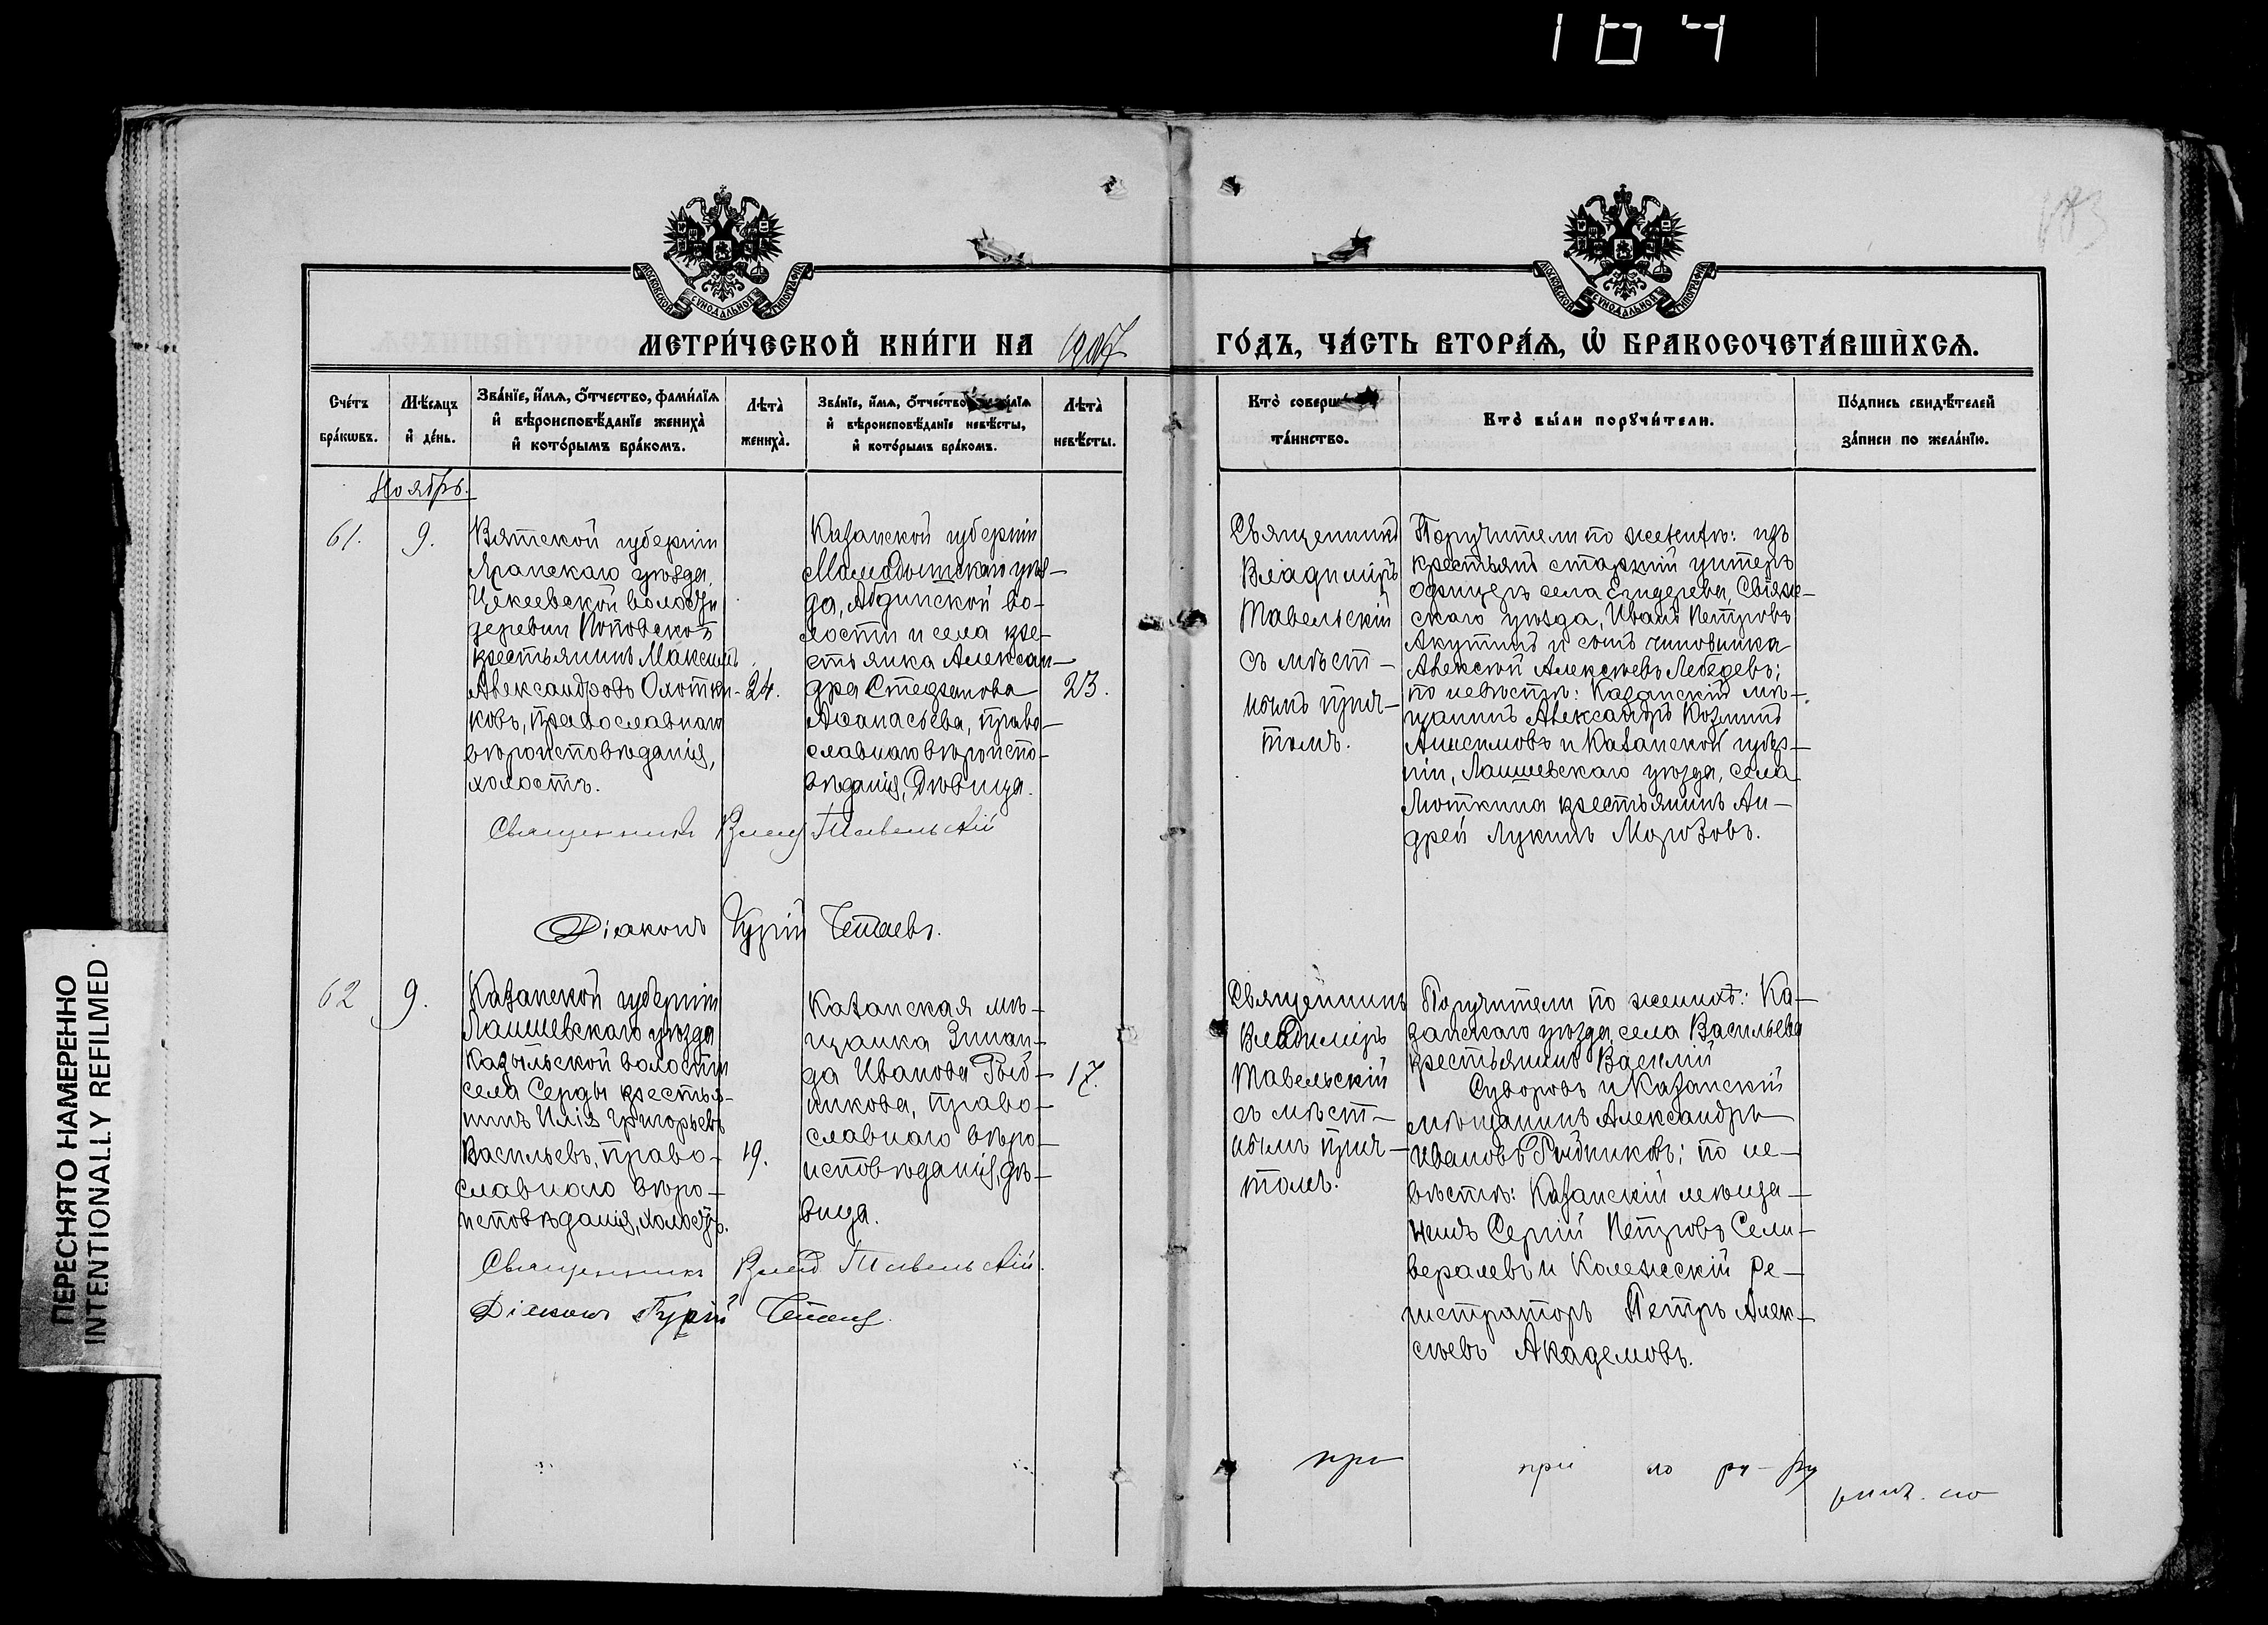 164
183
МОСКОВСКОЙ СѴНОДАЛЬНОЙ ТИПОГРАФІИ
МОСКОВСКОЙ СѴНОДАЛЬНОЙ ТИПОГРАФІИ
МЕТРИ́ЧЕСКОЙ КНИ́ГИ НА 1907 ГО́ДЪ, ЧА́СТЬ ВТОРА́Ѧ, Ѡ҆ БРАКОСОЧЕТА́ВШИХСѦ.
Сче́тъ
бра́кѡвъ.
Мѣ́сяцъ
и҆ де́нь.
Зва́нїе, и҆́мѧ, ѻ҆́тчество, фами́лїѧ
и҆ вѣроисповѣ́данїе жениха̀
и҆ кото́рымъ бра́комъ.
Лѣта̀
жениха̀.
Зва́нїе, и҆́мѧ, ѻ҆́тчество
и҆ вѣроисповѣ́данїе невѣ́сты,
и҆ кото́рымъ бра́комъ.
Лѣта̀
невѣ́сты.
Кто̀ соверш
та́инство.
Кто̀ бы́ли порꙋчи́тели.
По́дпись свидѣ́телей
за́писи по жела́нїю.
Ноябрь.
61.
9.
Вятской губерніи
Яранскаго уѣзда,
Цекеевской волости
деревни Поповской
крестьянинъ Максимъ
Александровъ Охотни-
ковъ, православнаго
вѣроисповѣданія,
холостъ.
24.
Казанской губерніи
Мамадышскаго уѣз-
да, Абдинской во-
лости и села кре-
стьянка Алексан-
дра Стефанова
Аѳанасьева, право-
славнаго вѣроиспо-
вѣданія, Дѣвица.
23.
Священникъ
Владиміръ
Тавельскій
съ мѣст-
нымъ прич-
томъ.
Поручители по женихѣ: изъ
крестьянъ старшій унтеръ
офицеръ села Егидерева, Свіяж-
скаго уѣзда, Иванъ Петровъ
Акутинъ и сынъ чиновника
Алексѣй Алексѣевъ Лебедевъ;
по невѣстѣ: Казанскій мѣ-
щанинъ Александръ Козминъ
Анисимовъ и Казанской губер-
ніи, Лаишевскаго уѣзда, села
Мюткина крестьянинъ Ан-
дрей Лукинъ Морозовъ.
Священникъ Влад Тавельскій
Діаконъ Гурій
62
9.
Казанской губерніи
Лаишевскаго уѣзда
Казыльской волости
села Серды крестья-
нинъ Илія Григорьевъ
Васильевъ, право-
славнаго вѣро-
исповѣданія, холостъ.
19.
Казанская мѣ-
щанка Зинаи-
да Иванова Рыб-
никова, право-
славнаго вѣро-
исповѣданія, дѣ-
вица.
17.
Священникъ
Владиміръ
Тавельскій
съ мѣст-
нымъ прич-
томъ.
Поручители по женихѣ: Ка-
занскаго уѣзда, села Васильева
крестьянинъ Василій
Суворовъ и Казанскій
мѣщанинъ Александръ
Ивановъ Рыбниковъ; по не-
вѣстѣ: Казанскій мѣща-
нинъ Сергій Петровъ Сели-
верстовъ и Колежскій ре-
гистраторъ Петръ Алек-
сѣевъ Академовъ.
Священникъ Влад Тавельскій.
Діаконъ Гурій
при
при по ру-ру
ПЕРЕСНЯТО НАМЕРЕННО
INTENTIONALLY REFILMED